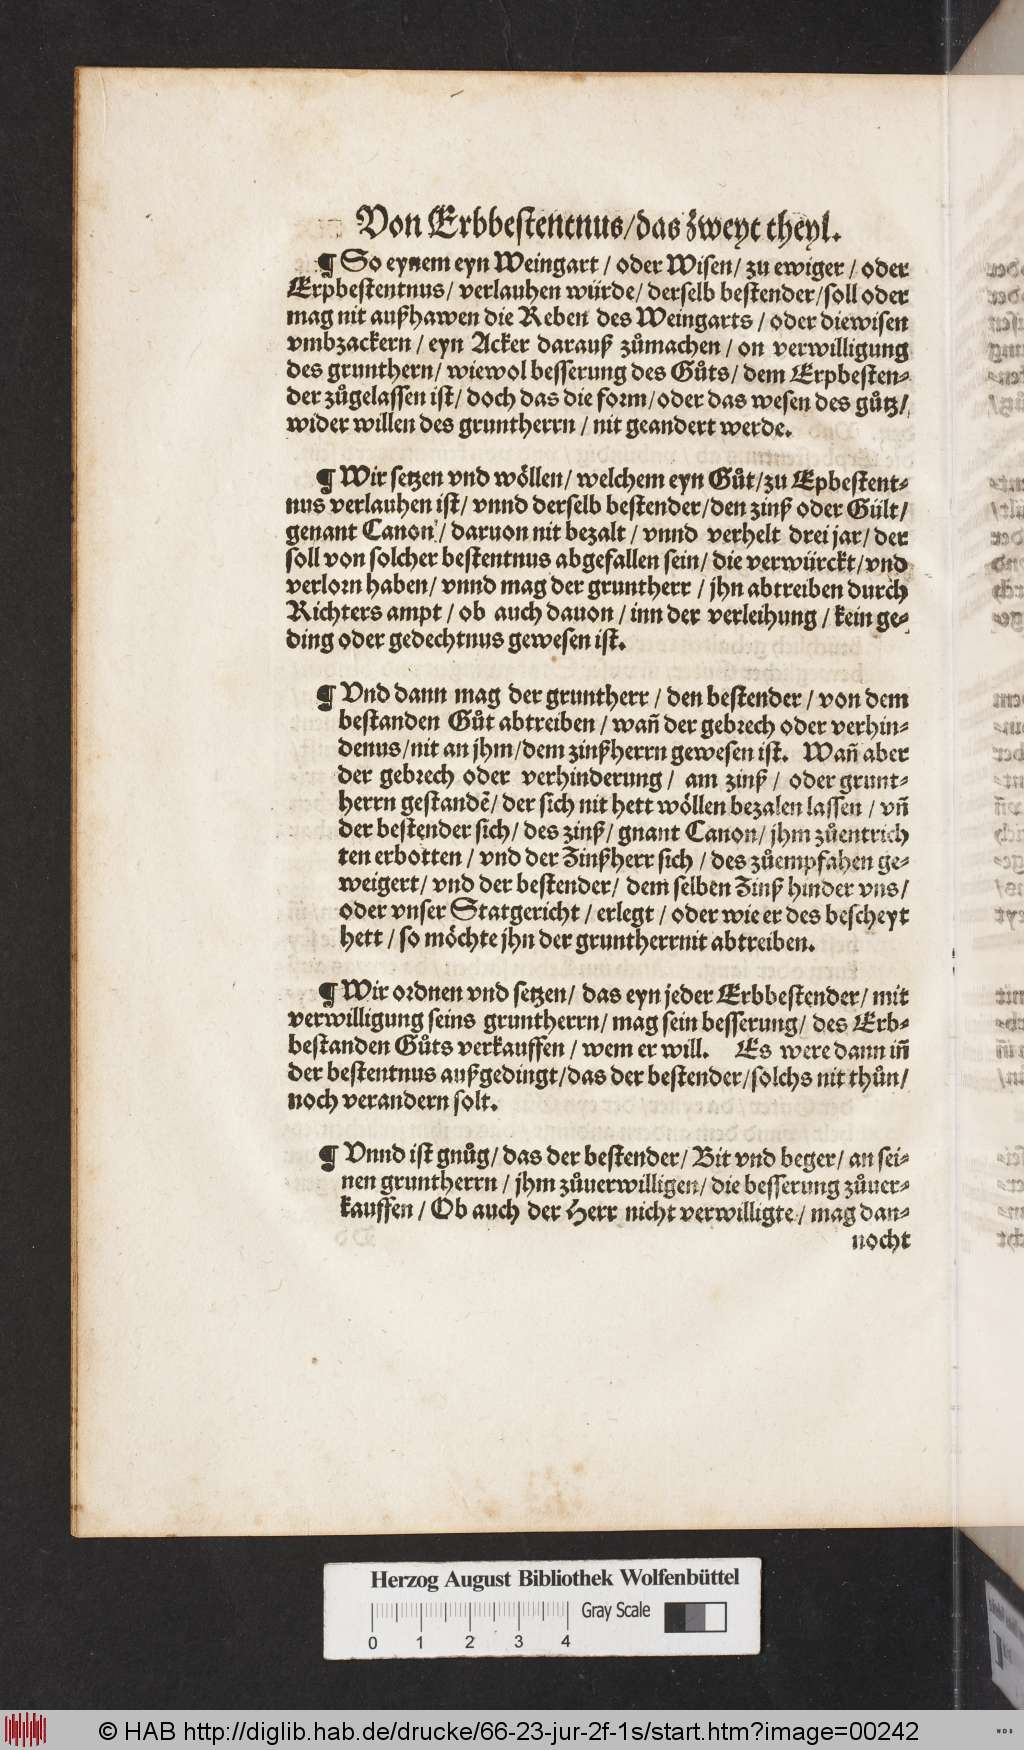 Von Erbbestentnus/das zweyt theyl.
¶ So eynem eyn Weingart / oder Wisen/ zu ewiger / oder
Erpbestentnus/ verlauhen würde/ derselb bestender/soll oder
mag nit außhawen die Reben des Weingarts / oder diewisen
vmbzackern / eyn Acker darauß zůmachen / on verwilligung
des grunthern/ wiewol besserung des Gůts/ dem Erpbesten-
der zůgelassen ist/ doch das die form/oder das wesen des gůtz/
wider willen des gruntherrn / nit geandert werde.
¶ Wir setzen vnd wöllen/ welchem eyn Gůt/zu Epbestent-
nus verlauhen ist/ vnnd derselb bestender/den zinß oder Gült/
genant Canon / daruon nit bezalt / vnnd verhelt drei jar/ der
soll von solcher bestentnus abgefallen sein/ die verwürckt/vnd
verlorn haben/ vnnd mag der gruntherr / jhn abtreiben durch
Richters ampt / ob auch dauon / inn der verleihung / kein ge-
ding oder gedechtnus gewesen ist.
¶ Vnd dann mag der gruntherr / den bestender / von dem
bestanden Gůt abtreiben / wañ der gebrech oder verhin-
denus/nit an jhm/dem zinßherrn gewesen ist. Wañ aber
der gebrech oder verhinderung / am zinß / oder grunt-
herrn gestandẽ/ der sich nit hett wöllen bezalen lassen / vñ
der bestender sich/ des zinß/ gnant Canon/ jhm zůentrich
ten erbotten / vnd der Zinßherr sich / des zůempfahen ge-
weigert/ vnd der bestender/ dem selben Zinß hinder vns/
oder vnser Statgericht / erlegt / oder wie er des bescheyt
hett / so möchte jhn der gruntherrnit abtreiben.
¶ Wir ordnen vnd setzen/ das eyn jeder Erbbestender/ mit
verwilligung seins gruntherrn/ mag sein besserung/ des Erb-
bestanden Gůts verkauffen / wem er will. Es were dann iñ
der bestentnus außgedingt/das der bestender/solchs nit thůn/
noch verandern solt.
¶ Vnnd ist gnůg/ das der bestender/ Bit vnd beger/ an sei-
nen gruntherrn / jhm zůuerwilligen/ die besserung zůuer-
kauffen / Ob auch der Herr nicht verwilligte / mag dan-
nocht
Herzog August Bibliothek Wolfenbüttel
Gray Scale
0 1 2 3 4
© HAB http://diglib.hab.de/drucke/66-23-jur-2f-1s/start.htm?image=00242